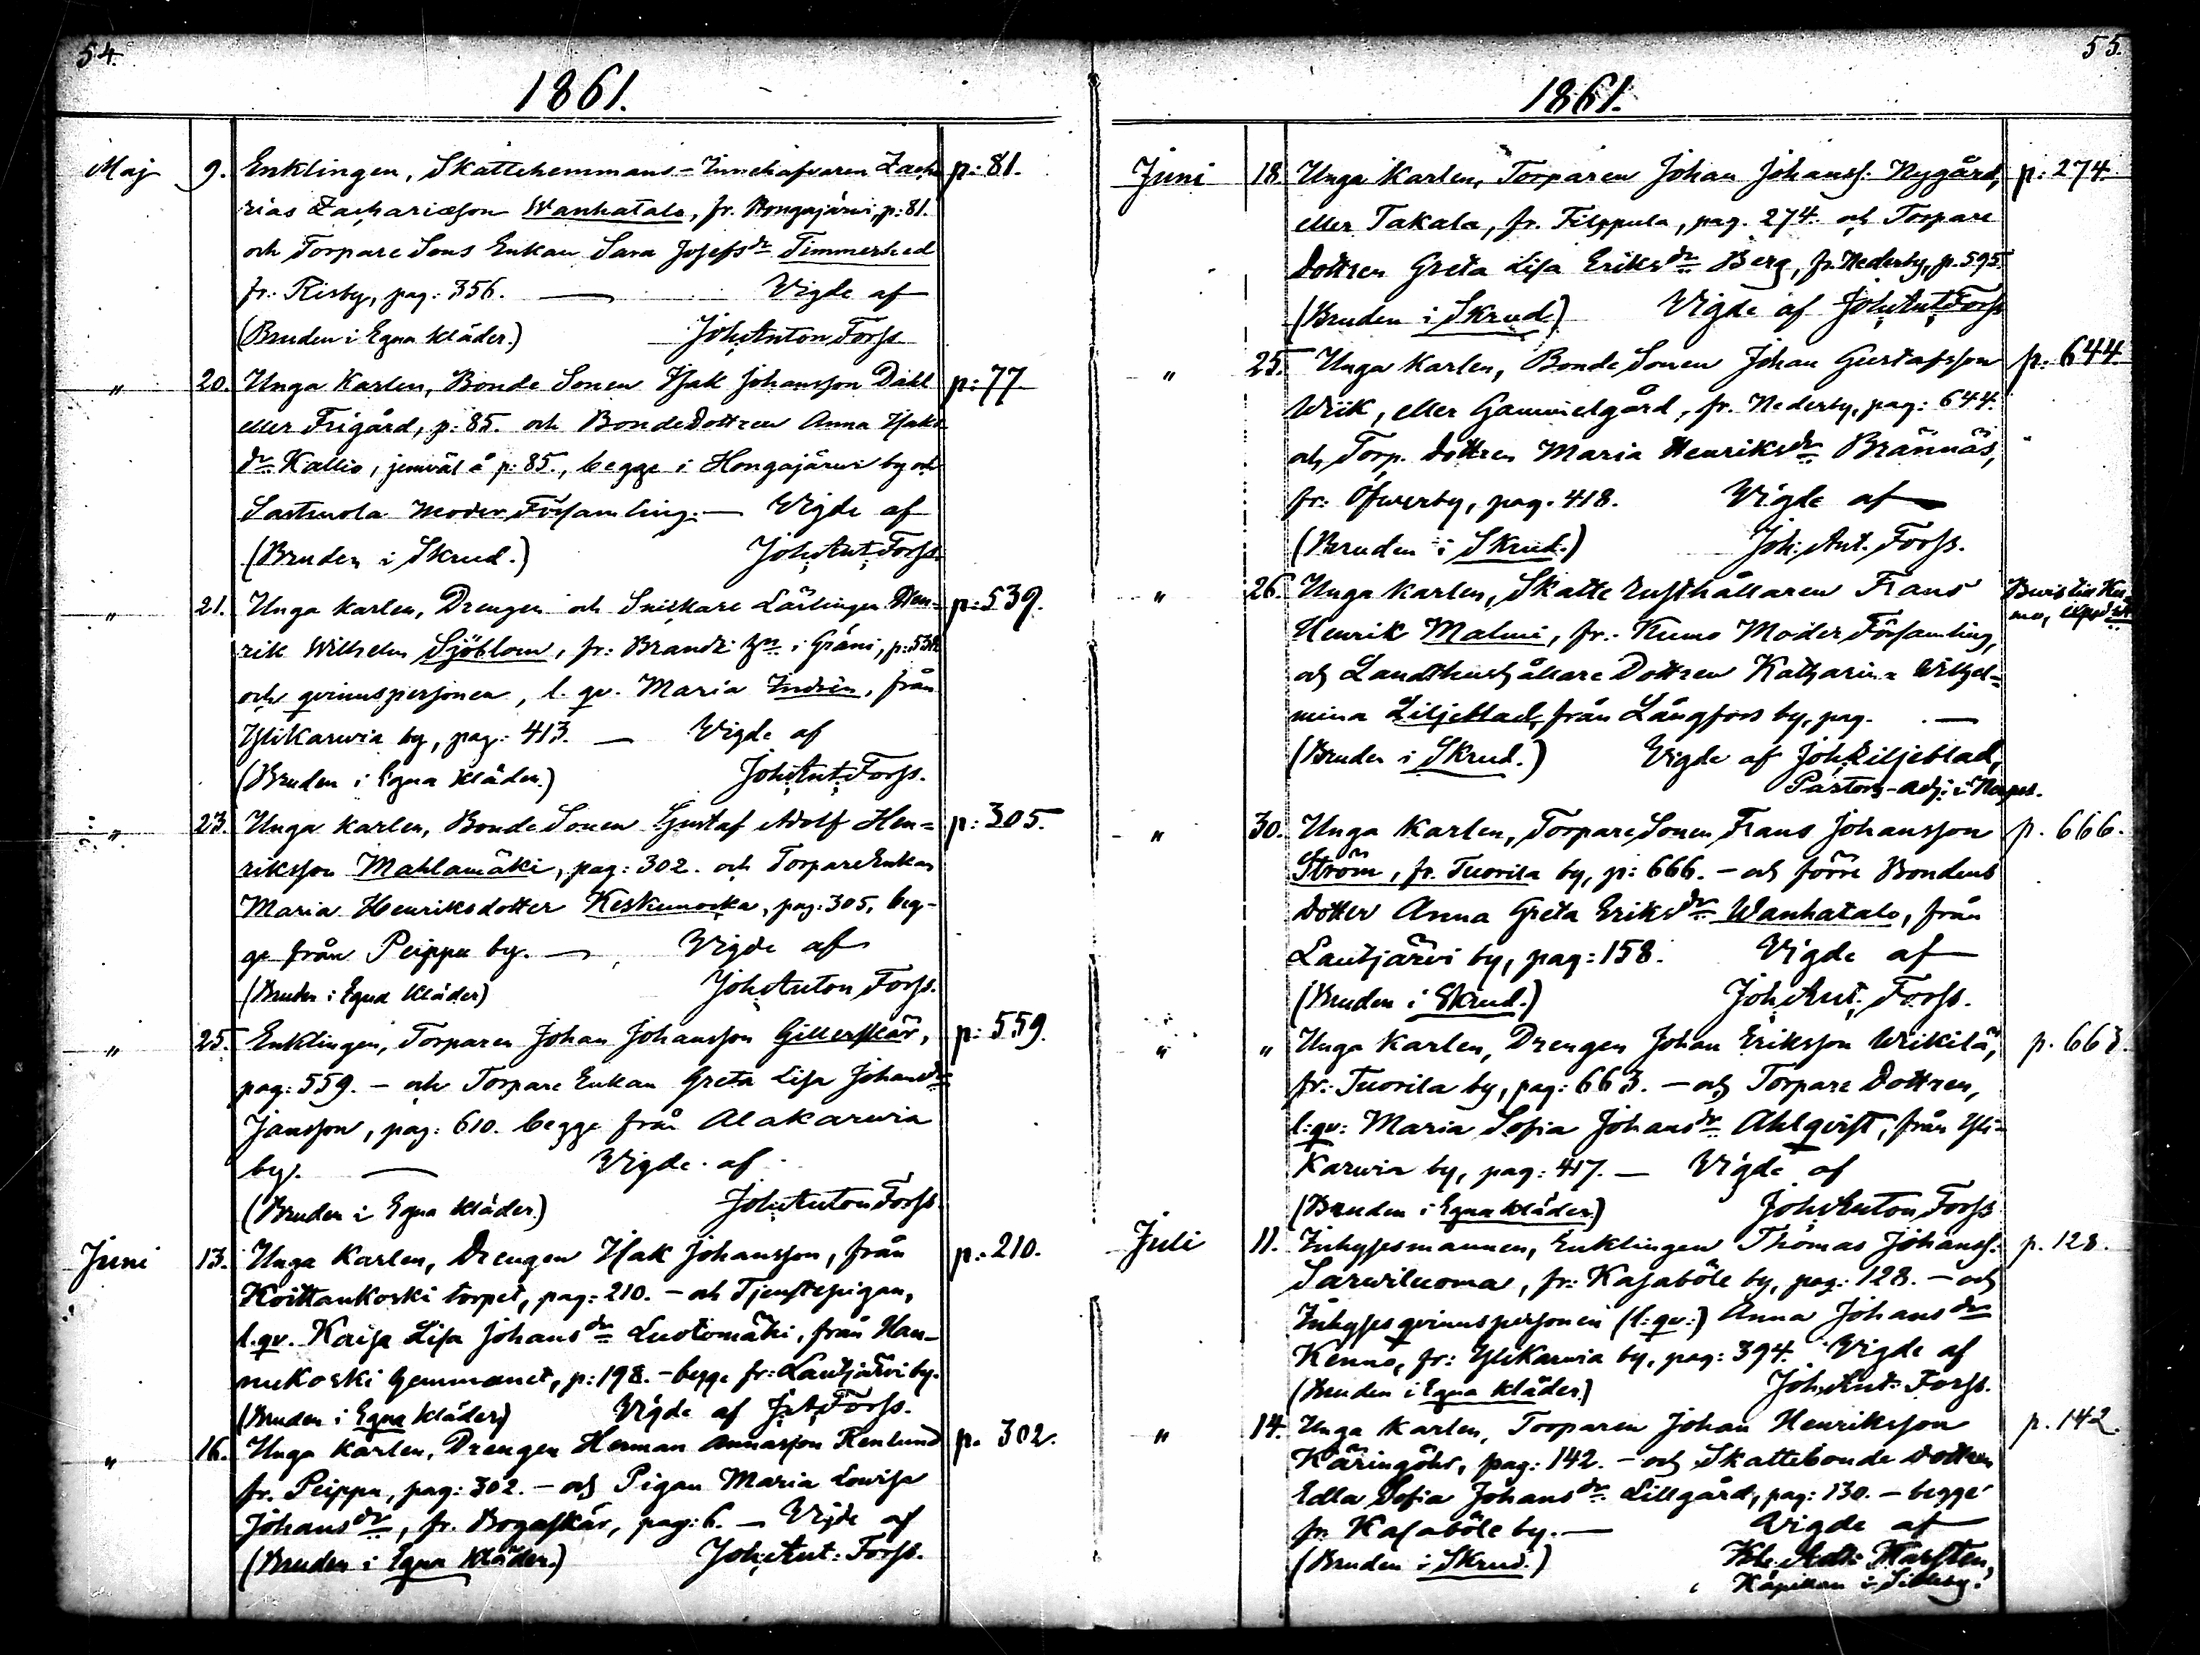 54.
1861.
Maj 9. Enklingen, Skattehemmans-Innehafvaren Zacha p: 81.
rias Zachariæson Wanhatalo, fr. Hongajärvi, p: 81.
och Torpare Sons Enkan Sara Josefsdr Timmerhed
fr: Risby, pag: 356. — Vigde af
(Bruden i Egna kläder.) Joh: Anton Forss.
" 20. Unga Karlen, Bonde Sonen Isak Johansson Dahl p: 77
eller Frigård, p: 85. och Bonde Dottren Anna Isaks
dr Kallio, jemväl å p: 85., begge i Hongajärvi by och
Sastmola Moder Församling. — Vigde af
(Bruden i Skrud.) Joh: Ant: Forss.
" 21. Unga karlen, Drengen och Snickare Lärlingen Hen- p: 539.
rik Wilhelm Sjöblom, fr: Brandt: i Gråni, p: 538
och qvinnspersonen, l. qv. Maria Indrén, från
Ylikarvia by, pag: 413. — Vigde af
(Bruden i Egna kläder.) Joh: Ant: Forss.
" 23. Unga karlen, Bonde Sonen Gustaf Adolf Hen= p: 305.
riksson Mahlamäki, pag: 302. och Torpare Enkan
Maria Henriksdotter Keskinocka, pag: 305, beg-
ge från Peippu by. — Vigde af
(Bruden i Egna kläder) Joh: Anton Forss.
" 25. Enklingen, Torparen Johan Johansson Gillerskär, p: 559.
pag: 559. — och Torpare Enkan Greta Lisa Johansdr
Jansson, pag: 610. begge från Alakarvia
by. — Vigde af
(Bruden i Egna kläder.) Joh: Anton Forss.
Juni 13. Unga Karlen, Drengen Isak Johansson, från p: 210.
Koittankoski torpet, pag: 210. — och Tjenstepigan,
l. qv. Kaisa Lisa Johansdr Luotomäki, från Han-
nukoski hemmanet, p: 198. — begge fr: Lautjärvi by.
(Bruden i Egna kläder) Vigde af J: A: Forss.
" 16. Unga karlen, Drengen Herman Annasson Renlund p. 302.
fr. Peippu, pag: 302. — och Pigan Maria Lovisa
Johansdr, fr. Bogaskär, pag: 6. — Vigde af
(Bruden i Egna kläder.) Joh: Ant: Forss.
55.
1861.
Juni 18. Unga Karlen, Torparen Johan Johanss: Nygård, p: 274.
eller Takala, fr. Filppula, pag. 274. och Torpare
Dottren Greta Lisa Eriksdr Berg, fr. Nederby, p. 595.
(Bruden i Skrud) Vigde af Joh: Ant: Forss
" 25. Unga Karlen, Bonde Sonen Johan Gustafsson p. 644.
Wiik, eller Gammelgård, fr. Nederby, pag: 644.
och Torp. Dottren Maria Henriksdr Brännäs,
fr: Öfverby, pag. 418. Vigde af
(Bruden i Skrud.) Joh: Ant. Forss.
" 26. Unga karlen, Skatte Rusthållaren Frans Bevis till Ku-
Henrik Malmi, fr. Kumo Moder Församling, mo,
och Landthushållare Dottren Katharina Wilhel=
mina Liljeblad, från Långfors by, pag. —
(Bruden i Skrud.) Vigde af Joh: Liljeblad,
Pastors-adj: i
" 30. Unga Karlen, Torpare Sonen, Frans Johansson p. 666.
Ström, fr. Tuorila by, p: 666. — och förre Bondens
dotter Anna Greta Eriksdr Wanhatalo, från
Lautjärvi by, pag: 158. Vigde af
(Bruden i Skrud.) Joh: Ant: Forss.
" " Unga Karlen, Drengen Johan Eriksson Wikilä, p. 663.
fr: Tuorila by, pag: 663. — och Torpare Dottren,
l: qv: Maria Sofia Johansdr Ahlqvist, från Yli-
Karvia by, pag: 417. — Vigde af
(Bruden i Egna kläder.) Joh: Anton Forss
Juli 11. Inhysesmannen, Enklingen Thomas Johanss: p. 128.
Sarviluoma, fr: Kasaböle by, pag: 128. — och
Inhyses qvinnspersonen (l: qv:) Anna Johansdr
Kenno, fr: Ylikarvia by, pag: 394. Vigde af
(Bruden i Egna kläder.) Joh: Ant: Forss.
" 14. Unga Karlen, Torparen Johan Henriksson p. 142.
Käringöhr, pag: 142. — och Skattebonde dottren
Edla Sofia Johansdr. Lillgård, pag: 130. — begge
fr. Kasaböle by. — Vigde af
(Bruden i Skrud.) Marsten,
Kapellan i Sideby.